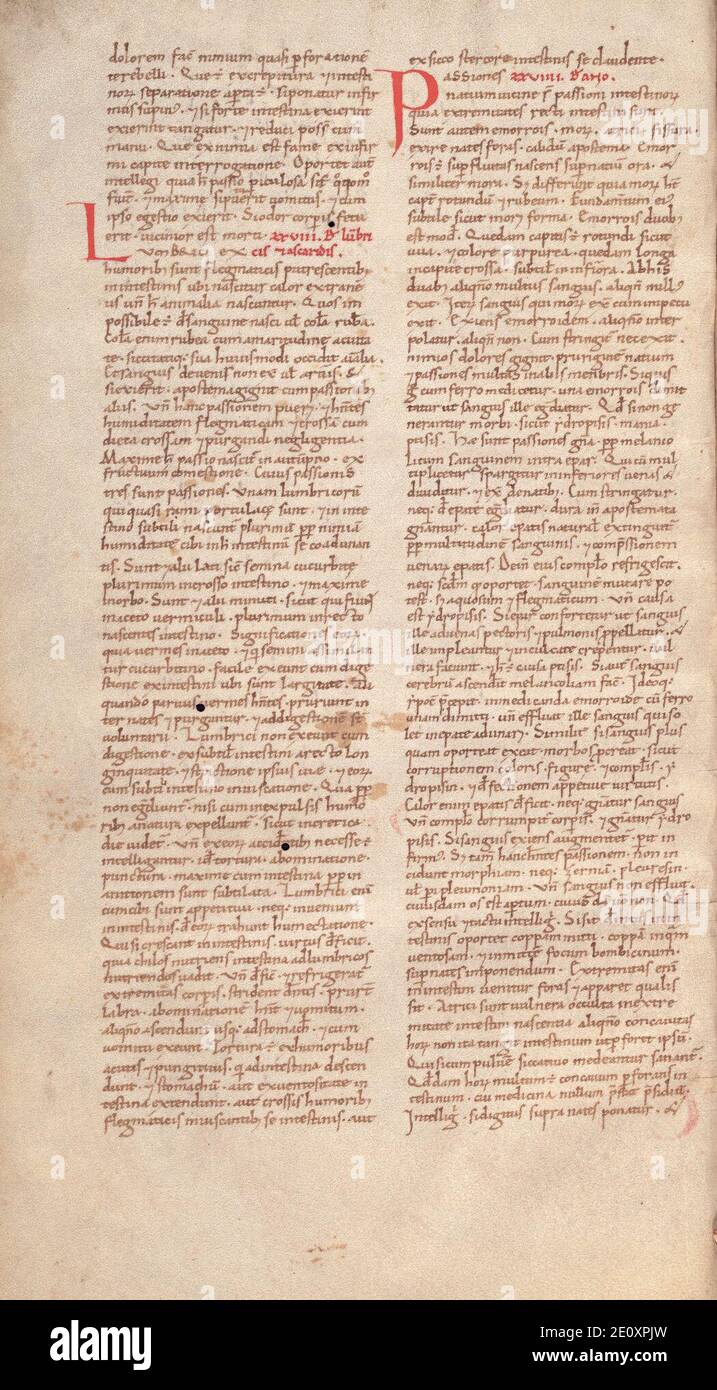 dolorem fac̄ nimium quasi ꝑforationē
terebelli · Que ē excrepitura ⁊ intesti
noꝝ separatione aperta · si ponatur infir
mus supin⁹ · ⁊ si forte intestina exierint
exierint tangatur · ⁊ reduci poss̄ cum
manu · Que eximia est fame ex infir
mi capite interrogatione · Oportet aut̄
intellegi quia h̄ passio piculosa sit
fiūt · ⁊ maxime si vomitus · ⁊ cum
ipso egestio exierit · Si odor corꝑis fetu
erit · uicinior est morti · xxviii · D̄ lūbri
cis ⁊ ascaridis ·
Lumbrici ex
humoribꝰ sunt flegmaticis putrescentibꝰ
in intestinis ubi nascitur calor extrane
us un̄ h̄ animalia nascuntur · Quos im
possibile ē d̄ sanguine nasci ul̄ cola rubea ·
Cola enim rubea cum amaritudine acuita
te · siccitateqꝫ sua huiusmodi occidit aīalia ·
Et sanguis de uenis non ex ul̄ &
si exierit · apostema gignit cum passionibꝰ
aliis · Un̄ hanc passionem pueri · ⁊ hn̄tes
humiditatem flegmaticam ⁊ crossā cum
dieta crossam ⁊ purgandi negligentia ·
Maxime h̄ passio nascit̄ in autūpno · ex
fructuum comestione · Cuius passionis
tres sunt passiones · Unam lumbricorū
qui quasi sunt · ⁊ in inte
stino subtili nascunt̄ plurimū ꝓꝑ nimiā
humiditatē cibi in h̄ intestinū se coadunan
tis · Sunt ⁊ alii lati sic̄ semina cucurbite
plurimum in crosso intestino · ⁊ maxime
morbo · Sunt ⁊ alii minuti · sicut qui fiunt
in aceto uermiculi · plurimum in recto
nascentes intestino · Significationes eoꝝ ·
qua uermes in aceto · ⁊ qͥ semini assimilan
tur cucurbitino · facile exeunt cum dige
stione ex intestini ubi sunt largitate · Ali
quando paruos uermes hn̄tes · pruriunt in
ter nates ⁊ purguntur · ⁊ ad digestionē st̄
uoluntarii · Lumbrici non exeunt cum
digestione · ex subtil̄ intestini a recto lon
ginquitate · ⁊ strictione ipsius uiae · ⁊ eoꝝ
cum subtili intestino inuiscatione · Qua ꝓꝑ
non egdiunt̄ · nisi cum inexpulsis humo
ribꝰ a natura expellunt̄ · sicut in cretica
die uidet̄ · Un̄ ex eoꝝ accid̄tibꝰ necesse ē
intelliguntur · id est tortura · abominatione ·
punctura · maxime cum intestina ꝓꝑ in
anitionem sunt subtilata · Lumbrici enī
cum cibi sunt appetitiui · neqꝫ inueniunt
in intestinis · d̄ eoꝝ trahunt humectatione ·
Qui si crescant in intestinis · uirtus d̄ficit ·
quia chilos nutriens intestina ad lumbricos
nutriendos uadit · Un̄ d̄fic̄ · ⁊ refrigerat̄
extremitas corꝑis · strident dentes · pruriunt
labra · abominationem hn̄t ⁊ uomitum ·
aliqn̄o ascendunt usqꝫ ad stomachū · ⁊ cum
uomitu exeunt · Tortura ē ex humoribus
acutis ⁊ pungitiuis · q̄ ad intestina descen
dunt · ⁊ stomachū · aut ex uentositate in
testina extendunt · aut crossis humoribꝰ
flegmaticis inuiscantibꝰ se intestinis · aut
ex sicco stercore intestinis se claudente ·
Passiones xxviiii · D̄ ano ·
natiū uicine st̄ passioni intestinoꝝ
quia extremitates recti intestini
Sunt autem emorrois · moꝝ · atrici · fissura ·
exire nates foras · calidū apostema · Emor
rois ē suꝑfluitas nascens supra natiū ora · &
similiter mora · Sꝫ differunt quia moꝝ hn̄t
caput rotundū ⁊ rubeum · Fundam̄tum ei⁹
subtile sicut mori forma · Emorrois duobꝰ
est modis · Quedam capitis ē rotundi sicut
uua · ⁊ colore purpurea · quedam longa
in capite crossa · subtilis inferiora · Ab his
duabꝰ aliqn̄o multus sanguis · aliqn̄ nullus
exit · Iteꝝ sanguis qui moꝝ ex̄ cum impetu
exit · Exiens emorroidem · aliqn̄o inter
polatur · aliqn̄ non · Cum stringit̄ nec exit ·
nimios dolores gignit · prurigine natium
⁊ passiones multas in aliis membris · Si quis
g̊ cum ferro medicetur · una emorrois dimit
titur ut sanguis ille eg̊diatur · Qd̄ si non ge
nerantur morbi · sicut ydropisis · mania ·
ptisis · Hae sunt passiones · ꝓꝑ melanco
licum sanguinem intra epar · Qui cum mul
tiplicetur · spargitur in inferiores uenas &
diuiditur · ⁊ ex donatibꝰ · Cum stringatur ·
neqꝫ d̄ epate eg̊diatur · dura in̄ apostemata
gn̄antur · calor epatis natural̄ extinguit̄
ꝓꝑ multitudinē sanguinis · ⁊ comp̄ssionem
uenaꝝ epatis · Dein̄ eius complo refrigescit ·
neqꝫ scd̄m q̄ oportet · sanguinē mutare po
test · sꝫ aquosum ⁊ flegmaticum · Un̄ causa
est ydropisis · Si epar confortetur ut sanguis
ille ad uenas pectoris ⁊ pulmonis ꝓpellatur · &
ille impleuntur ⁊ inculcate crepentur · uul
nera faciunt · ⁊ h̄ ē causa ptisis · Si aut̄ sanguis
cerebrū ascendit melancoliam fac̄ · Ideoqꝫ
ypoc̄ p̄cepit · in medicanda emorroide cū ferro
unam dimitti · un̄ effluat ille sanguis qui so
let in epate adunari · Similit̄ si sanguis plus
quam oporteat exeat · morbos ꝑcreat · sicut
corruptionem coloris · figure · ⁊ complōis · ⁊
ydropisin · ⁊ d̄fectionem appetitiue uirtutis ·
Calor enim epatis d̄ficit · neqꝫ gn̄atur sanguis
Un̄ complo corrumpit̄ corꝑis · ⁊ gn̄atur ydro
pisis · Si sanguis exiens augmentet̄ · ꝑit in
firmus · Si tam̄ hanc hn̄tes passionem · non in
cidunt morphiam · neqꝫ · pleuresin ·
ul̄ pipleumoniam · Un̄ sanguis non effluit
cuiusdam os est aptum · non · Qd̄
ex sensu ⁊ tactu intelligit̄ · Si sit intra in
testinis oportet coppam mitti · coppā inqͣm
uentosam · ⁊ inmitti focum bombicinum ·
sup nates inponendum · Extremitas enim
intestini uenitur foras ⁊ apparet qualis
sit · Atrici sunt uulnera occulta in extre
mitate intestini nascentia aliqn̄o concauitas
hoꝝ non ita tangit intestinum ut ꝑforet ipsū ·
Qui sicum puluere siccatiuo medeantur sanant̄ ·
Qd̄dam hoꝝ multum ē concauum ꝑforans in
testinum · cui medicina nullum pōt p̄sidiū ·
Intelligit̄ · si digitus supra nates ponatur · &
alamy
Image ID: 2E0XPJW
www.alamy.com